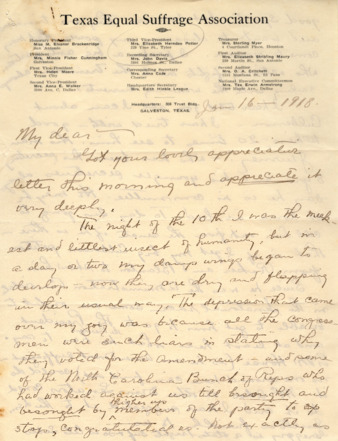 Texas Equal Suffrage Association
Honorary President
Miss M. Eleanor Brackenridge
San Antonio
President
Mrs. Minnie Fisher Cunningham
Galveston
First Vice-President
Mrs. Helen Moore
Texas City
Second Vice-President
Mrs. Anna B. Walker
Third Vice-President
Mrs. Elizabeth Herndon Potter
Recording Secretary
Mrs. John Davis
Dallas
Corresponding Secretary
Mrs. Anna Cade
Headquarters Secretary
Mrs. Edith Hinkle League
Treasurer
First Auditor
San Antonio
Second Auditor
Dallas
National Executive Committeewoman
Mrs. Tex Ermine Armstrong
Dallas
Headquarters: Trust Bldg.
GALVESTON, TEXAS.
Jan 16 — 1918
My dear —
Got your lovely appreciative
letter this morning and appreciate it
very deeply.
The night of the 10th I was the meek-
est and littlest insect of humanity, but in
a day or two my damp wings began to
develop — now they are dry and flapping
in their usual way. The depression that came
over my joy was because all the congress
men were such liars in stating why
they voted for the Amendment — and some
of the North Carolina Bunch of Repes who
had worked against us till besought and
besought by higher ups members of the party to
stop, congratulated us. Not exactly as